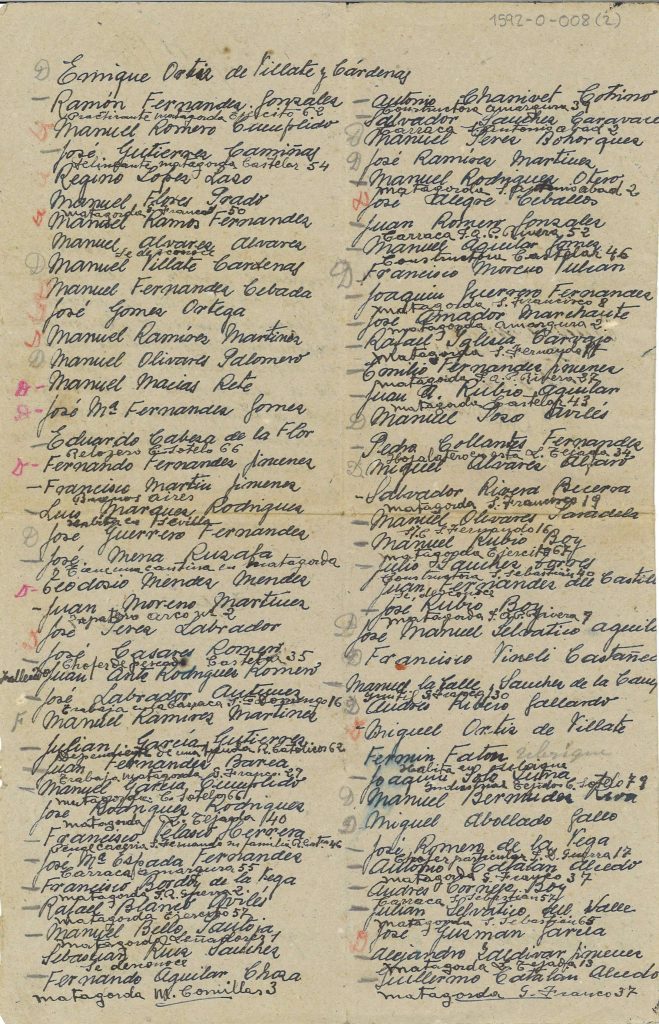 1592-0-008(2)
D Enrique Ortiz de Villate y Cárdenas
- Ramón Fernandez Gonzalez
Practicante matagorda Ejército 62
Manuel Romero Cumplido
- José Gutierrez Camiñas
Delineante matagorda Castelar 54
Regino Lopez Laso
Manuel Flores Prado
matagorda G. Franco 50
Manuel Ramos Fernandez
Manuel Alvarez Alvarez
Se desconoce
D Manuel Villate Cardenas
Manuel Fernandez Cebada
José Gomez Ortega
Manuel Ramirez Martinez
D Manuel Olivares Palomero
D- Manuel Macias Rete
D- José Mª Fernandez Gomez
- Eduardo Cabeza de la Flor
Relojero C. Sotelo 66
D- Fernando Fernandez Jimenez
- Francisco Martin Jimenez
Buenos aires
- Luis Marquez Rodriguez
en Sevilla
D José Guerrero Fernandez
- José Mena Ruzafa
Tiene una cantina en matagorda
D- Teodosio Mendez Mendez
- Juan Moreno Martinez
Zapatero arco nº 2
José Perez Labrador
- José Casares Romero
Chofer de pescado Castelar 35
Fallecido Juan Ante Rodriguez Romero
- José Labrador Antiguez
Trabaja en la Carraca S. Domingo 16
F Manuel Ramirez Martinez
- Julian Garcia Gutierrez
Dependiente de una tienda R. Catolicos 62
- Juan Fernandez Barea
Trabaja matagorda G. Franco
- Manuel Garcia Cumplido
matagorda C. Sotelo 61
- José Rodriguez Rodriguez
matagorda L. Tejada 40
- Francisco Velasco Herrera
S. Fernando su familia 46
- José Mª Espada Fernandez
Carraca amargura 55
- Francisco Bordoy de la Vega
matagorda J. D. Guerra 2
- Rafael Blanco Avilés
matagorda Ejercito 57
- Manuel Bello Santoja
matagorda
- Sebastian Ruiz Sanchez
Se desconoce
- Fernando Aguilar Choza
matagorda M. Comillas 3
- Antonio Chanivet Cotrino
Constructora amargura 39
- Salvador Sanchez Caravaca
Carraca S. antonio abad 2
D Manuel Perez Bohorquez
D José Ramirez Martinez
- Manuel Rodriguez Otero
matagorda S. Antonio abad 2
José Alegre Ceballos
- Juan Romero Gonzalez
Carraca J. A. P. Rivera 52
- Manuel Aguilar Gomez
Constructora Castelar 46
D Francisco Moreno Julian
- Joaquin Guerrero Fernandez
matagorda S. Francisco 8
- José Amador Marchante
matagorda amargura 2
- Rafael Iglesia Carvajo
matagorda S. Fernando
- Emilio Fernandez Jimenez
matagorda J. A. P. Rivera 37
- Juan A. Rubio Aguilar
matagorda Castelar 43
D Manuel Poso Aviles
- Pedro Collantes Fernandez
Hojalatero cuesta L. Tejada 34
D Miguel Alvarez Alfaro
- Salvador Rivera Becerra
matagorda S. Francisco 19
- Manuel Olivares Paradela
S. Fernando 16
- Manuel Rubio Boy
matagorda Ejercito 67
- Julio Sanchez Torres
Constructora S. Sebastian
- Juan Fernandez del Castillo
Se desconoce
- José Rubio Boy
matagorda J. A. P. Rivera 9
D José Manuel Selvatico aguila
D Francisco Vineli Castañeda
Manuel la Calle Sanchez de la Campa
G. Franco 30
D Andres Ribero Gallardo
Miguel Ortiz de Villate
Fermin Faton
- Joaquin Poso Luma
Industrial Tejidos C. Sotelo 79
D Manuel Bermudez Riva
D Miguel Abollado Gallo
- José Romero de la Vega
Chofer particular J. D. Guerra 17
- Antonio Catalan Alcedo
matagorda G. Franco 37
- Andres Cornejo Boy
Carraca S. Sebastian 57
- Julian Selvatico del Valle
matagorda S. Sebastian 65
D José Guzman Garcia
- Alejandro Zaldivar Jimenez
matagorda L. Tejada 13
- Guillermo Catalan Alcedo
matagorda G. Franco 37